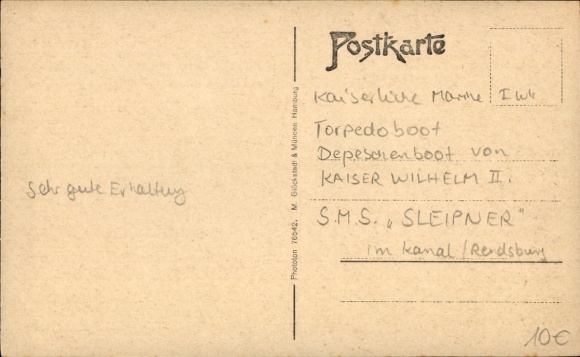 Postkarte
Kaiserliche Marine I WK
Torpedoboot
Depeschenboot von
KAISER WILHELM II.
S.M.S. „SLEIPNER"
im Kanal / Rendsburg
Sehr gute Erhaltung
Phototon 76542. M. Glückstadt & Münden Hamburg
10€